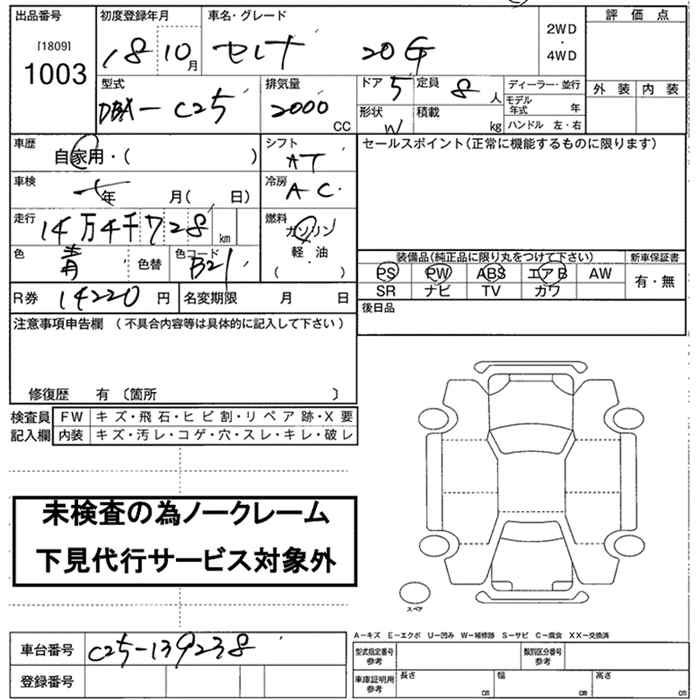 出品番号 初度登録年月 車名・グレード 評価点
[1809] 1003 18 10月 セレナ 20G 2WD・4WD
型式 排気量 ドア 5 定員 8人 ディーラー・並行 外装 内装
DBA-C25 2000CC 形状 W 積載 kg モデル年式 年
ハンドル 左・右
車歴 自家用・( ) シフト AT セールスポイント(正常に機能するものに限ります)
車検 年 月( 日) 冷房 AC
走行 14万4千728km 燃料 ガソリン
色 青 色替 色コード B21 軽・油
( )
装備品(純正品に限り丸をつけて下さい) 新車保証書
PS PW ABS エアB AW 有・無
SR ナビ TV カワ
R券 14220円 名変期限 月 日 後日品
注意事項申告欄 (不具合内容等は具体的に記入して下さい)
修復歴 有 〔箇所 〕
検査員 FW キズ・飛石・ヒビ割・リペア跡・X要
記入欄 内装 キズ・汚レ・コゲ・穴・スレ・キレ・破レ
未検査の為ノークレーム
下見代行サービス対象外
スペア
A−キズ E−エクボ U−凹み W−補修跡 S−サビ C−腐食 XX−交換済
車台番号 C25-139238 型式指定番号 参考 類別区分番号 参考
登録番号 車庫証明用 参考 長さ cm 幅 cm 高さ cm